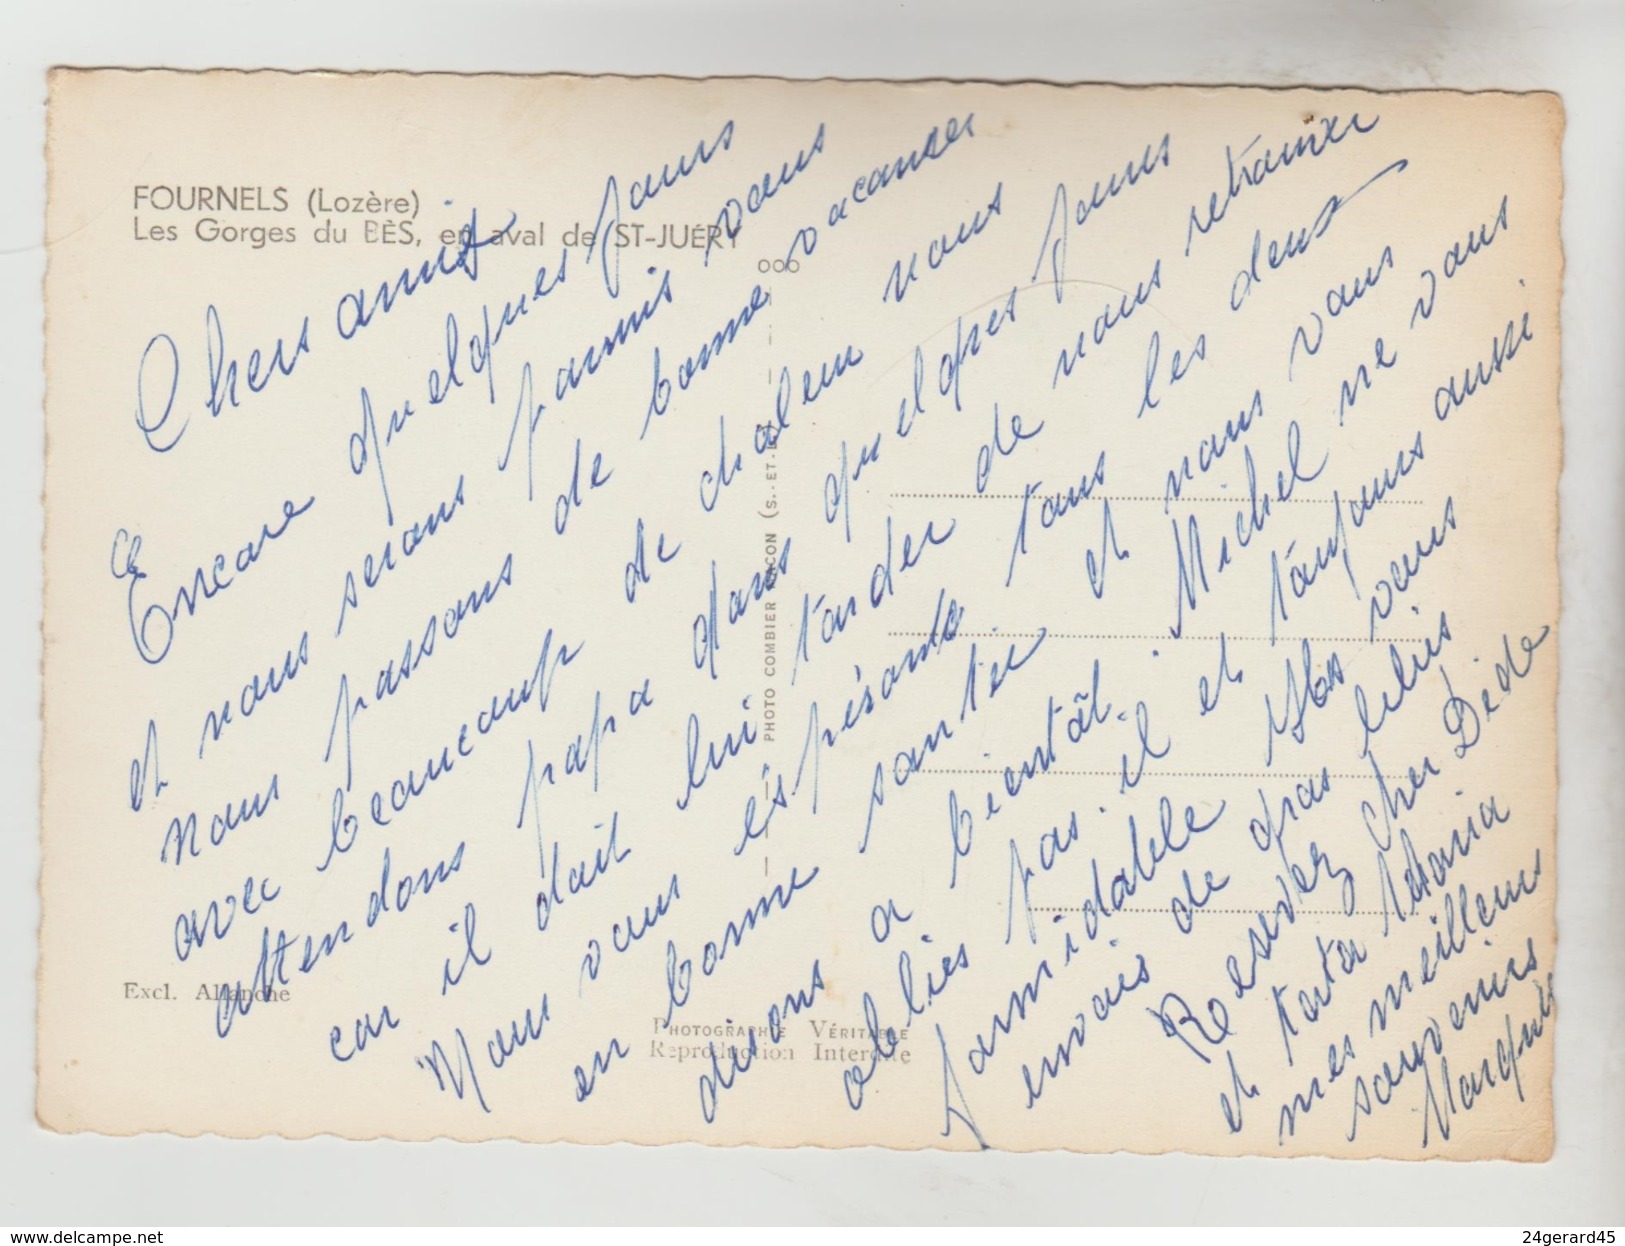 FOURNELS (Lozère)
Les Gorges du BÈS, en aval de ST-JUÉRY
Chers amis
Encore quelques jours
et nous serons parmis vous
nous passons de bonne vacanses
avec beaucoup de chaleur nous
attendons papa dans quelques jours
car il doit lui tarder de nous retrouver
Nous vous éspésante tous les deux
en bonne santée et nous vous
disons a bientôt. Michel ne vous
oblies pas. il et toujours aussi
formidable vous
envois de gros
Resevez cher Dédé
et tata
mes meilleurs
souvenirs
ooo
PHOTO COMBIER MACON (S.-ET-L.)
Excl. Allanche
PHOTOGRAPHIE VÉRITABLE
Reproduction Interdite
delcampe.net
24gerard45